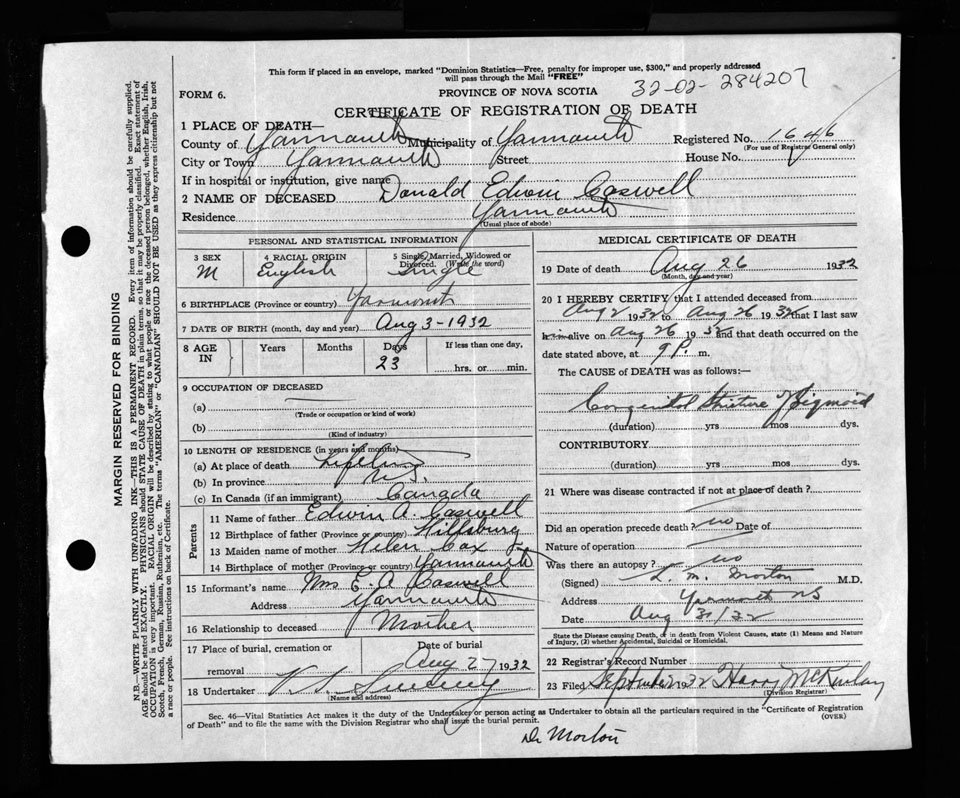 This form if placed in an envelope, marked "Dominion Statistics—Free, penalty for improper use, $300," and properly addressed
will pass through the Mail "FREE"
FORM 6.
PROVINCE OF NOVA SCOTIA
32-02-284207
CERTIFICATE OF REGISTRATION OF DEATH
1 PLACE OF DEATH—
County of Yarmouth Municipality of Yarmouth Registered No. 1646
(For use of Registrar General only)
City or Town Yarmouth Street House No.
If in hospital or institution, give name
2 NAME OF DECEASED Donald Edwin Caswell
Residence Yarmouth
(Usual place of abode)
PERSONAL AND STATISTICAL INFORMATION
3 SEX 4 RACIAL ORIGIN 5 Single, Married, Widowed or Divorced. (Write the word)
M English Single
6 BIRTHPLACE (Province or country) Yarmouth
7 DATE OF BIRTH (month, day and year) Aug 3-1932
8 AGE IN Years Months Days 23 If less than one day, hrs. or min.
9 OCCUPATION OF DECEASED
(a)
(Trade or occupation or kind of work)
(b)
(Kind of industry)
10 LENGTH OF RESIDENCE (in years and months)
(a) At place of death Lifetime
(b) In province N.S.
(c) In Canada (if an immigrant) Canada
Parents
11 Name of father Edwin A. Caswell
12 Birthplace of father (Province or country) Hillsburg
13 Maiden name of mother Helen Cox
14 Birthplace of mother (Province or country) Yarmouth
15 Informant's name Mrs E. A. Caswell
Address Yarmouth
16 Relationship to deceased Mother
17 Place of burial, cremation or removal Date of burial Aug 27 1932
18 Undertaker V. S. Sweeney
(Name and address)
MEDICAL CERTIFICATE OF DEATH
19 Date of death Aug 26 1932
(Month, day and year)
20 I HEREBY CERTIFY that I attended deceased from
Aug 2 1932 to Aug 26 1932 that I last saw
him alive on Aug 26 1932 and that death occurred on the
date stated above, at 9 P. m.
The CAUSE of DEATH was as follows:—
Congenital Stricture of Sigmoid
(duration) yrs mos dys.
CONTRIBUTORY
(duration) yrs mos dys.
21 Where was disease contracted if not at place of death?
Did an operation precede death? no Date of
Nature of operation
Was there an autopsy? no
(Signed) L. M. Morton M.D.
Address Yarmouth NS
Date Aug 31/32
State the Disease causing Death, or in death from Violent Causes, state (1) Means and Nature
of Injury, (2) whether Accidental, Suicidal or Homicidal.
22 Registrar's Record Number
23 Filed 1932 Harry McKinlay
(Division Registrar)
Sec. 46—Vital Statistics Act makes it the duty of the Undertaker or person acting as Undertaker to obtain all the particulars required in the "Certificate of Registration
of Death" and to file the same with the Division Registrar who shall issue the burial permit.
(OVER)
Dr Morton
MARGIN RESERVED FOR BINDING
N.B.—WRITE PLAINLY WITH UNFADING INK—THIS IS A PERMANENT RECORD. Every item of information should be carefully supplied.
AGE should be stated EXACTLY. PHYSICIANS should STATE CAUSE OF DEATH in plain terms, so that it may be properly classified. Exact statement of
OCCUPATION is very important. RACIAL ORIGIN will be described by stating to what people or race the deceased person belonged, whether English, Irish,
Scotch, French, German, Russian, Ruthenian, etc. The terms "AMERICAN" or "CANADIAN" SHOULD NOT BE USED as they express citizenship but not
a race or people. See instructions on back of Certificate.